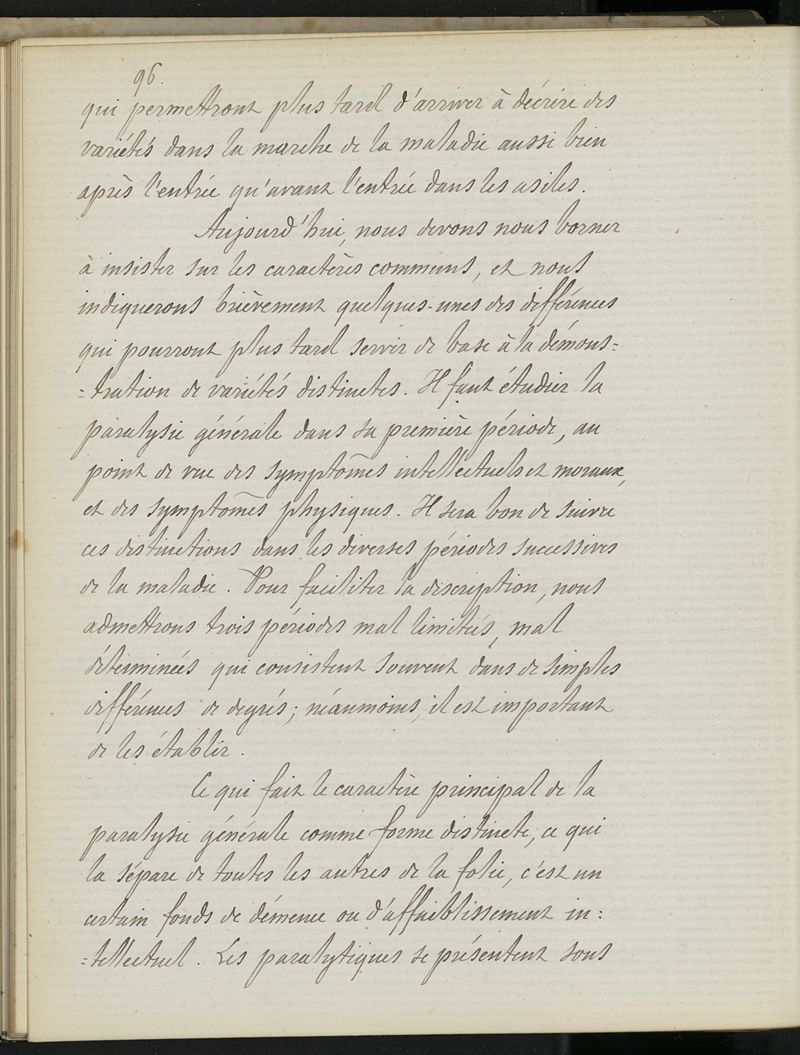 96.
qui permettront plus tard d'arriver à décrire des
variétés dans la marche de la maladie aussi bien
après l'entrée qu'avant l'entrée dans les asiles.
Aujourd'hui, nous devons nous borner
à insister sur les caractères communs, et nous
indiquerons brièvement quelques-unes des différences
qui pourront plus tard servir de base à la démons=
=tration de variétés distinctes. Il faut étudier la
paralysie générale dans sa première période, au
point de vue des symptômes intellectuels et moraux,
et des symptômes physiques. Il sera bon de suivre
ces distinctions dans les diverses périodes successives
de la maladie. Pour faciliter la description, nous
admettrons trois périodes mal limitées, mal
déterminées qui consistent souvent dans de simples
différences de degrés; néanmoins, il est important
de les établir.
Ce qui fait le caractère principal de la
paralysie générale comme forme distincte, ce qui
la sépare de toutes les autres de la folie, c'est un
certain fonds de démence ou d'affaiblissement in=
=tellectuel. Les paralytiques se présentent sous